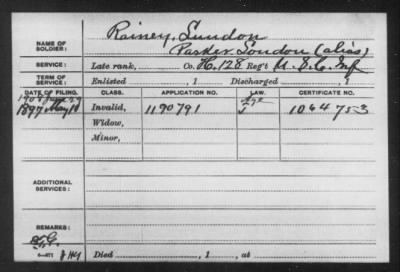 NAME OF SOLDIER: Rainey, Sundon
Parker Soudon (alias)
SERVICE: Late rank, Co. H, 128 Reg't U.S.C. Inf
TERM OF SERVICE: Enlisted , 1 Discharged , 1
DATE OF FILING. CLASS. APPLICATION NO. LAW. CERTIFICATE NO.
1908 June 29 Age
1897 May 10 Invalid, 1190791 J 1064753
Widow,
Minor,
ADDITIONAL SERVICES:
REMARKS:
6—471
Died , 1 , at